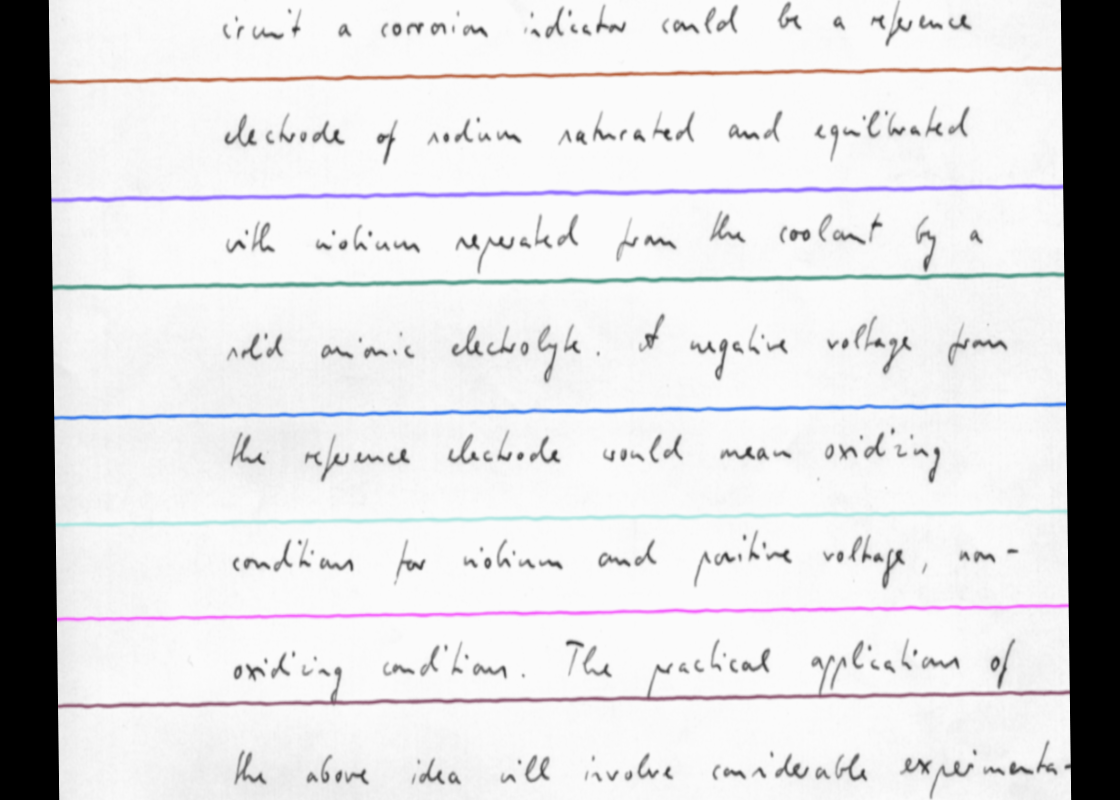 circuit a corrosion indicator could be a reference
electrode of sodium saturated and equilibrated
with niobium seperated from the coolant by a
solid anionic electrolyte. A negative voltage from
the reference electrode would mean oxidizing
conditions for niobium and positive voltage, non-
oxidizing conditions. The practical applications of
the above idea will involve considerable experimenta-